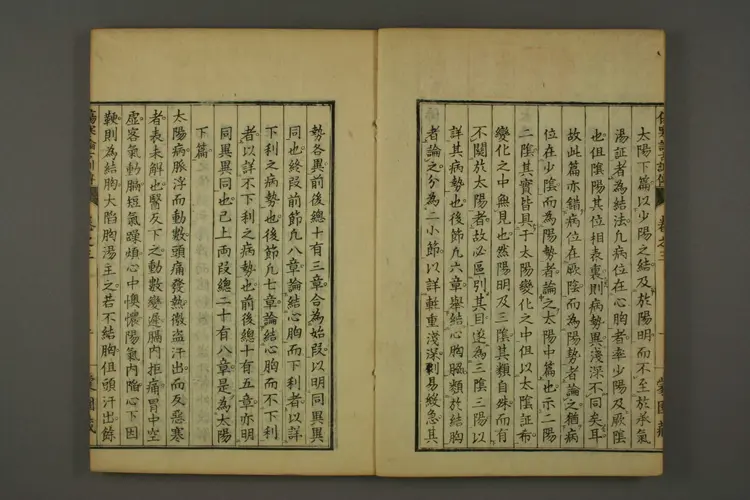 太陽下篇以少陽之結及於陽明而不至於承氣
湯証者為結法凡病位在心胸者率少陽及厥陰
也但陰陽其位相表裏則病勢異淺深不同矣耳
故此篇亦錯病位在厥陰而為陽勢者論之猶病
位在少陰而為陽勢者論之太陽中篇也示二陽
二陰其實皆具于太陽變化之中但以太陰証希
變化之中無見也然陽明及三陰其類自殊而有
不關於太陽者故必區別其目遂為三陰三陽以
詳其病勢也後節凡六章舉結心胸膈類於結胸
者論之分為二小節以詳輕重淺深別易終急其
勢各異前後總十有三章合為始段以明同異異
同也終段前節凡八章論結心胸而下利者以詳
下利之病勢也後節凡七章論結心胸而不下利
者以詳不下利之病勢也前後總十有五章亦明
同異異同也已上兩段總二十有八章是為太陽
下篇
太陽病脈浮而動數頭痛發熱微盜汗出而反惡寒
者表未解也醫反下之動數變遲膈內拒痛胃中空
虛客氣動膈短氣躁煩心中懊憹陽氣內陷心下因
鞕則為結胸大陷胸湯主之若不結胸但頭汗出餘